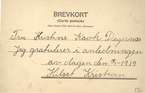 BREVKORT
(Carte postale)
Fru Kristine
Jeg gratulerer i anledningen
av dagen den 8-1919
Helget Kristian